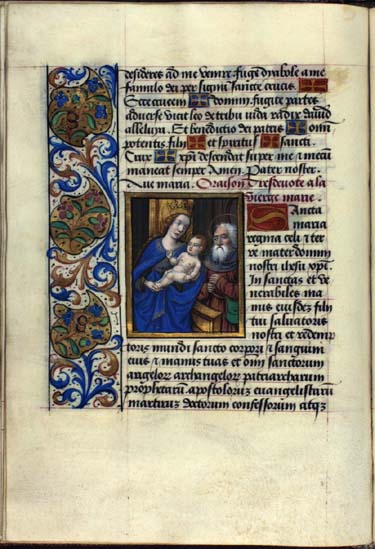 desideres ad me venire. fuge dyabole a me
famulo dei per signū sancte crucis.
Ecce crucem domini fugite partes
adverse vicit leo de tribu iuda radix david
alleluya. Et benedictio dei patris omī
potentis filii et spiritus sancti
Crux xp̄i descendat super me i meci
maneat semper Amen. Pater noster.
Ave maria. Oraison tresdevote a la
vierge marie.
Sancta
maria
regina celi i ter
re mater domini
nostri ihesu xp̄i.
In sanctas et ve
nerabiles ma
nus eiusdē filii
tui salvatoris
nostri et redemp
toris mundi sancto corpori i sanguini
eius i manus tuas et oīm sanctorum
angelorꝝ archangelorꝝ patriarcharum
prophetarū. apostolorꝝ euangelistarū
martirum doctorum confessorum atqꝫ